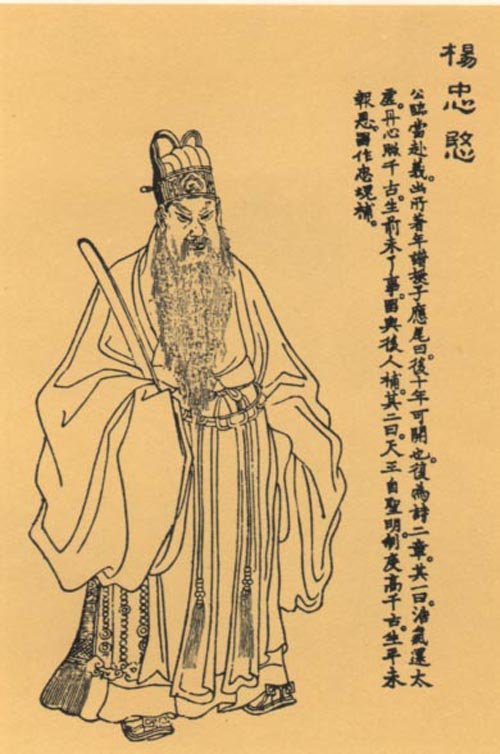 楊忠愍
公臨當赴義。出所著年譜授子應尾曰。後十年可開也。復為詩二章。其一曰。浩氣還太
虛。丹心照千古。生前未了事。留與後人補。其二曰。天王自聖明。制度高千古。生平未
報恩。留作忠魂補。